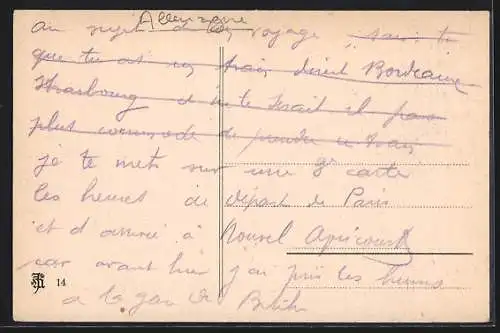 Allemagne
au sujet de ton voyage sais tu
que tu as un train direct Bordeaux
Strasbourg ne te serait il pas
plus commode de prendre ce train
je te mets sur une 3e carte
les heures de départ de Paris
et d arrivée à Nouvel
car avant hier j'ai pris les
a la gare de
14